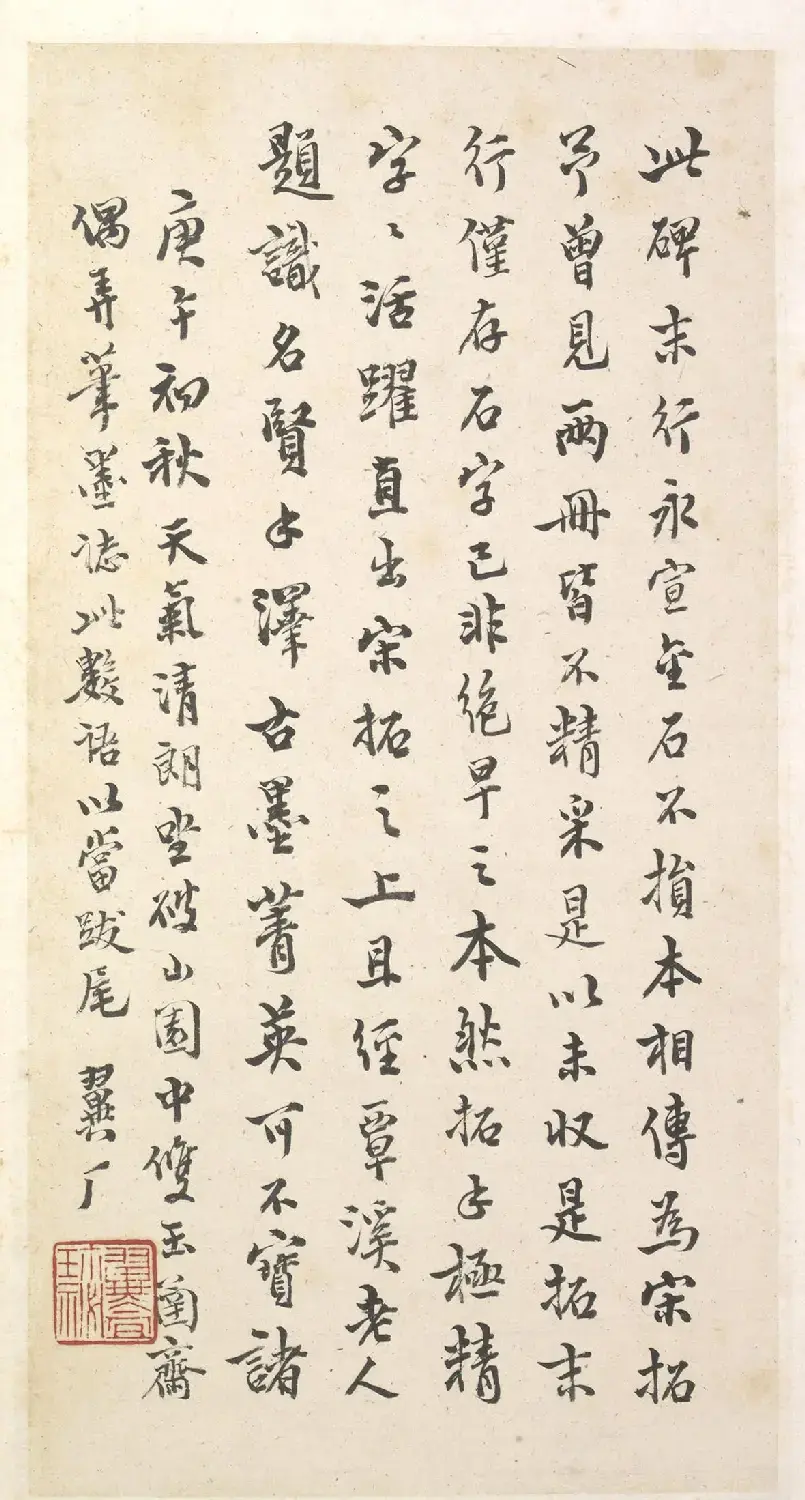 此碑末行永宣金石不損本相傳為宋拓
予曾見兩冊皆不精采是以未收是拓末
行僅存石字已非絶早之本然拓手極精
字〻活躍直出宋拓之上且經覃溪老人
題識名賢手澤古墨菁英可不寶諸
庚午初秋天氣清朗坐破山園中雙玉蘭齋
偶弄筆墨誌此數語以當跋尾 翼厂